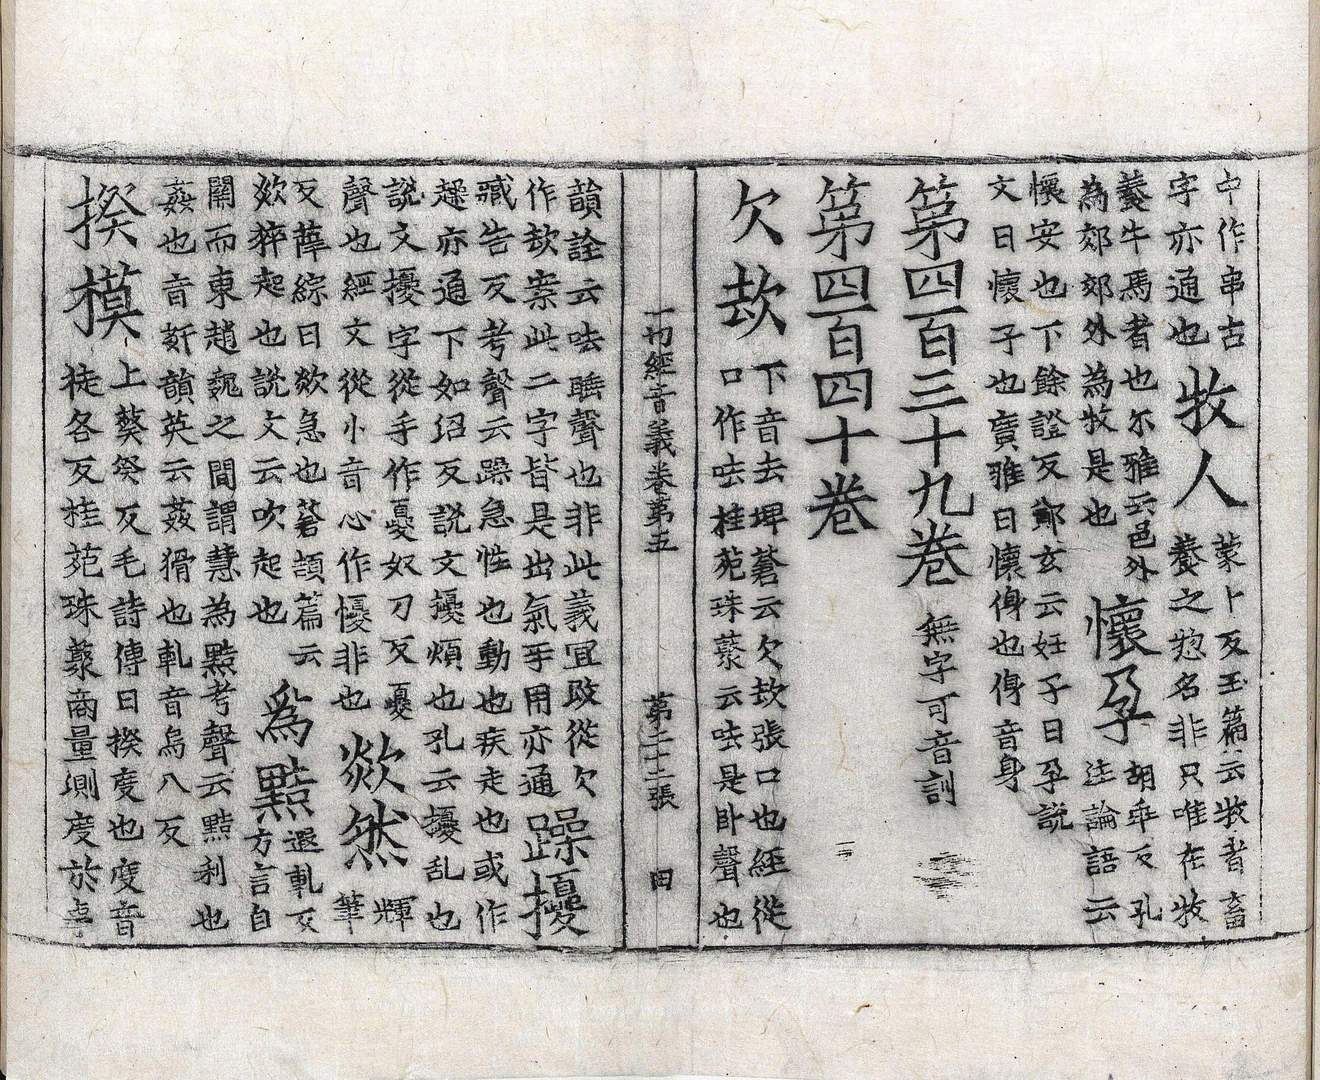 中作串古
字亦通也牧人蒙卜反玉篇云牧者畜
養之惣名非只唯在牧
養牛馬者也尒雅云邑外
為郊郊外為牧是也懷孕胡乖反孔
注論語云
懷安也下餘證反鄭玄云妊子曰孕説
文曰懷子也廣雅曰懷身也㑗音身
第四百三十九卷無字可音訓
第四百四十卷
欠㰦下音去埤蒼云欠㰦張口也經從
口作呿桂苑珠藂云呿是卧聲也
一切經音義卷第五 第二十二張 田
韻詮云呿睡聲也非此義宜改從欠
作㰦案此二字皆是出氣乎用亦通躁擾
臧告反考聲云躁急性也動也疾走也或作
趮亦通下如沼反説文擾煩也孔云擾乱也
説文擾字從手作夒奴刀反夒
聲也經文從小音心作懮非也欻然輝
筆
反薛綜曰欻急也蒼頡篇云
欻猝起也説文云吹起也為黠遐軋反
方言自
關而東趙魏之間謂慧為黠考聲云黠利也
姦也音姧韻英云姦猾也軋音烏八反
揆模上葵癸反毛詩傳曰揆度也度音
徒各反桂苑珠藂商量測度於事